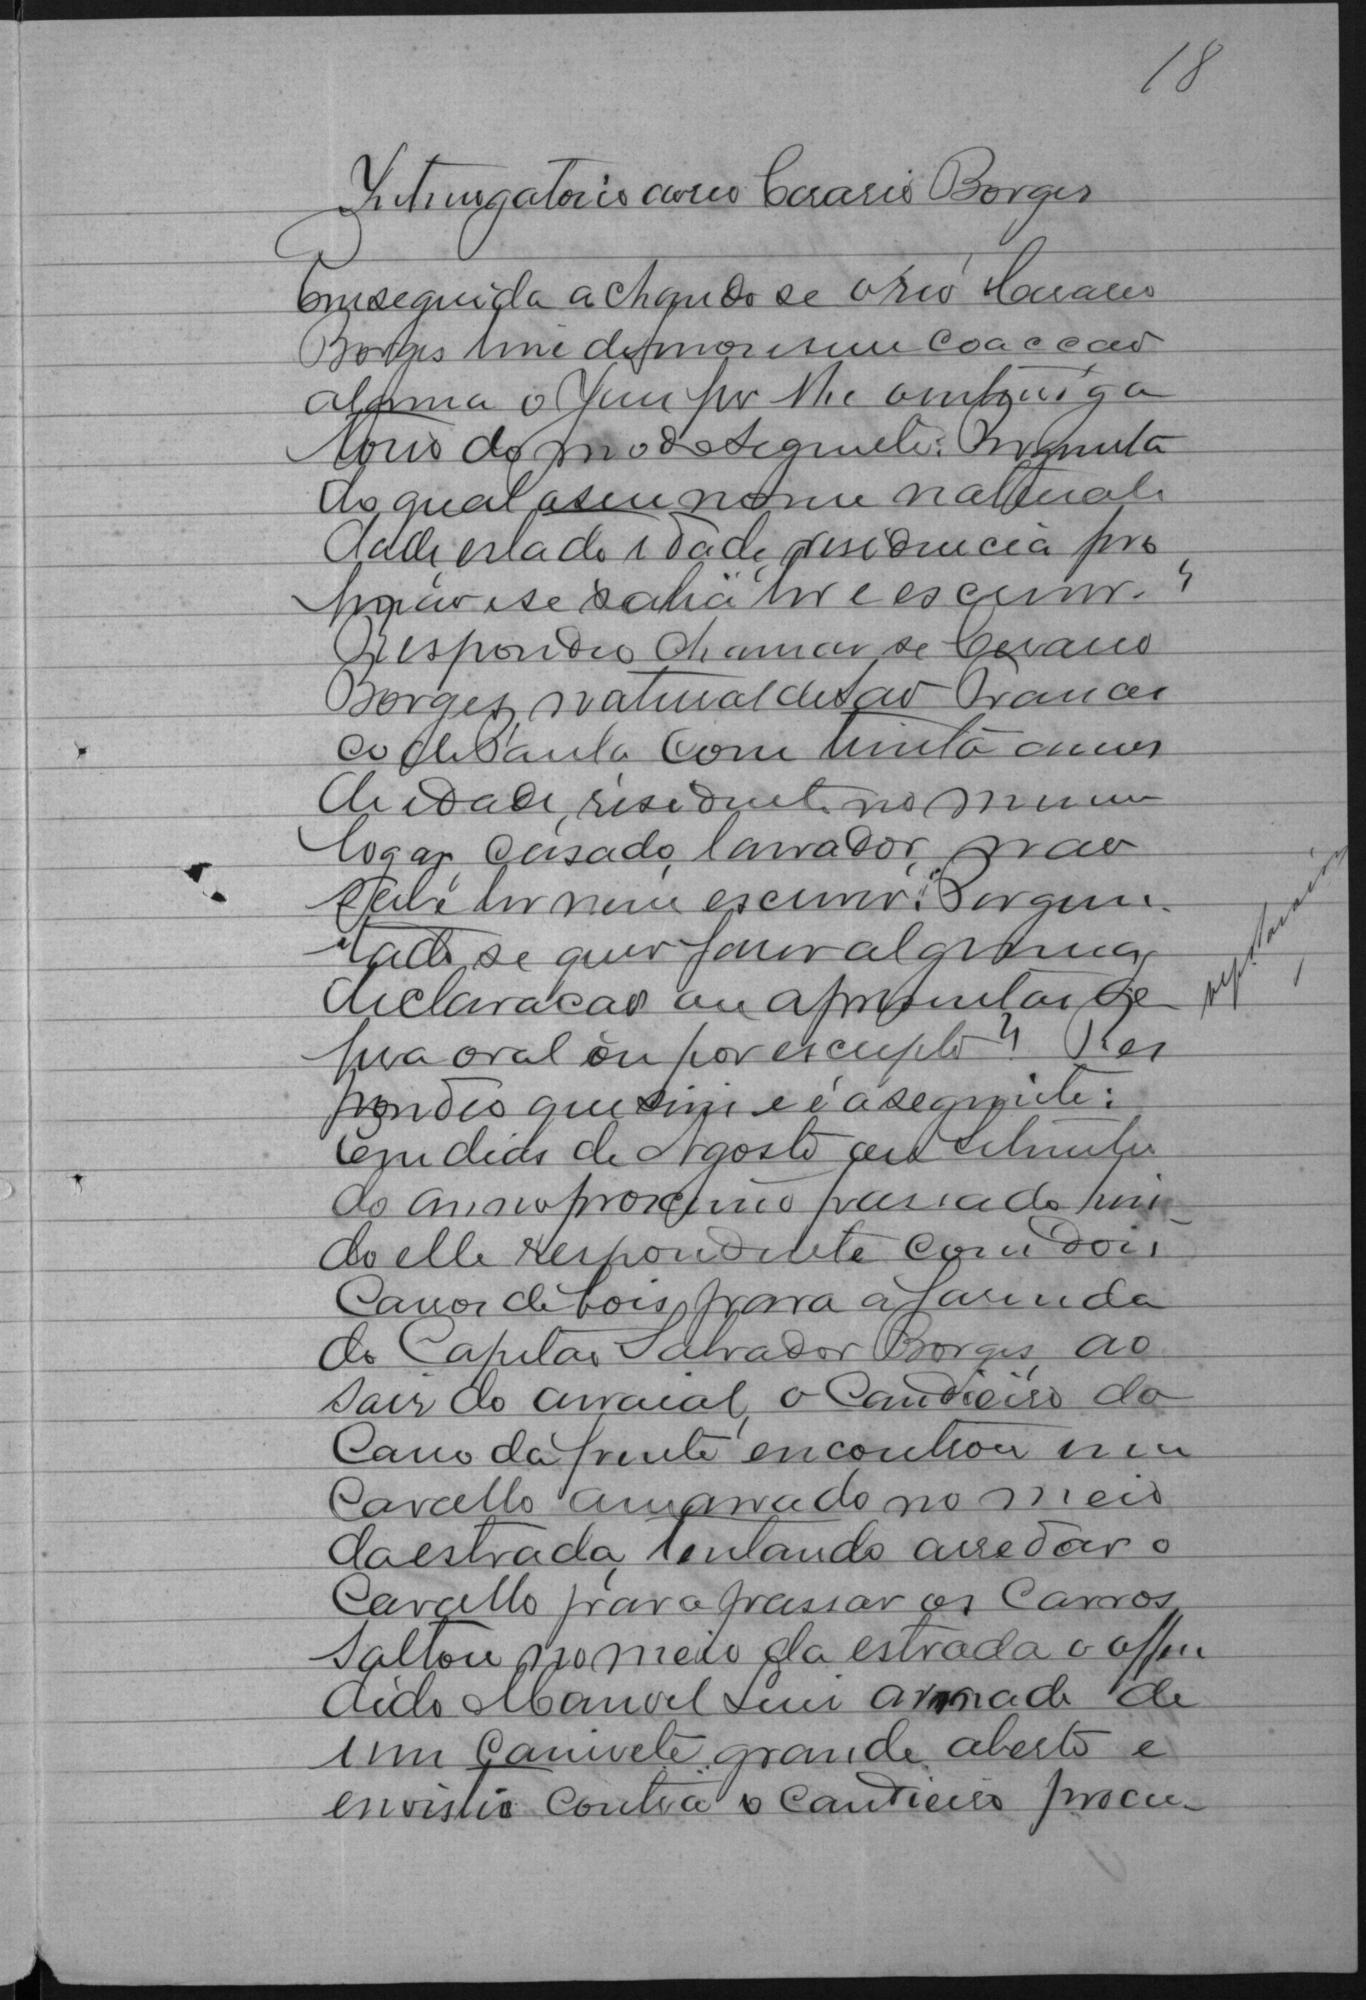 18
Interrogatorio ao reo Cesario Borges
Em seguida achando se o reo Cesario
Borges livre de ferros e sem coacção
alguma o Juiz fez lhe o interroga
torio do modo seguinte: Pergunta
do qual o seu nome naturali
dade, estado idade, residencia pro
fissão e se sabia ler e escrever. ?
Respondeo chamar se Cesario
Borges, natural de São Francis
co de Paula com trinta annos
de idade, residente no mesmo
logar, casado, lavrador, não
sabe ler nem escrever. Pergun
tado se quer fazer algumas
declaracao ou apresentar de
feza oral ou por escripto? Res
pondeo que sim e é a seguinte:
Em dias de Agosto ou Setembro
do anno proximo passado, vin
do elle respondente com dois
Carros de bois, para a fazenda
do Capitão Salvador Borges, ao
sair do arraial, o Candieiro do
Carro da frente encontrou um
Cavallo amarrado no meio
da estrada, tentando arredar o
Cavallo para passar os Carros
saltou no meio da estrada o offen
dido Manoel Luis armado de
um Canivete grande aberto e
envistio contra o Candieiro procu-